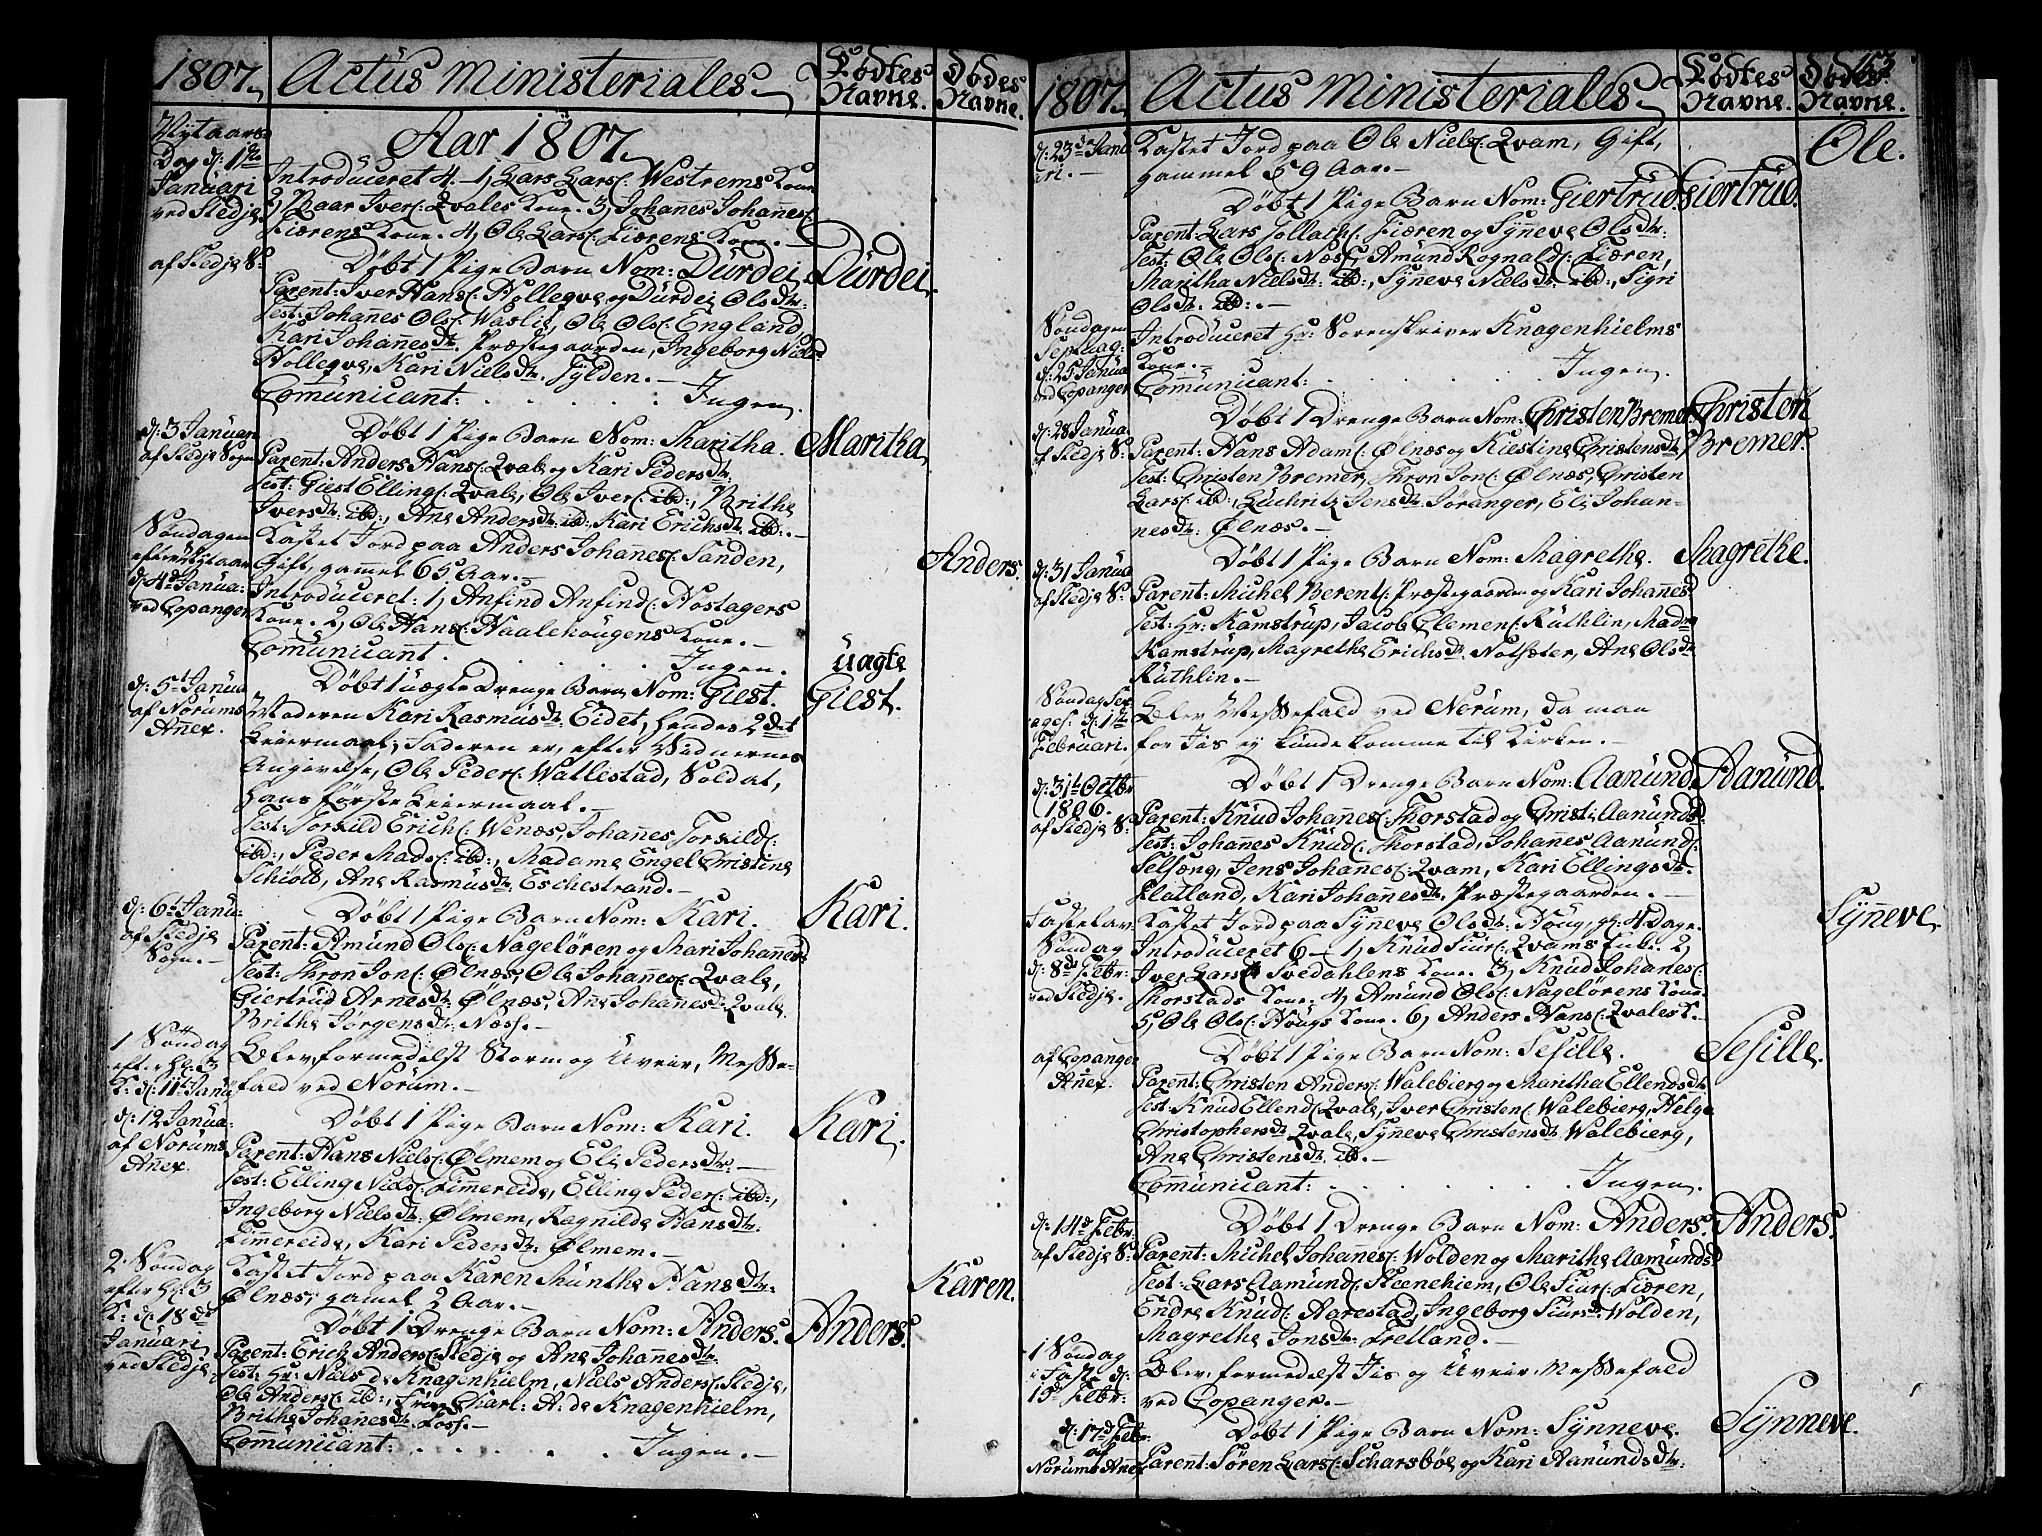 1807. Actus Ministeriales. Fødtes Navne. Dødes Navne.
Nytaars Dag d: 1ste Januari ved Stedje
Aar 1807.
Introduceret 4. 1, Lars Lars: Westrems Kone
2, Paar Ivers: Qvales Kone. 3, Johannes Johannes:
Fiærens Kone. 4, Ole Lars: Fiærens Kone.
af Stedje S:
Døbt 1 Pige Barn Nom: Dürdei. Dürdei.
Parent: Iver Hans: Holleqve og Dürdei Olsdtr:
Test: Johanes Ols: Waslie, Ole Ols: England,
Kari Johanesdtr: Præstegaarden, Ingeborg Niels
Holleqve, Kari Nielsdtr: Fylden.
Communicant: . . . . . Ingen.
d: 3 Januari af Stedje Sogn
Døbt 1 Pige Barn Nom: Maritha. Maritha.
Parent: Anders Hans: Qvale og Kari Pedersdtr:
Test: Giest Elling: Qvale, Ole Ivers: ibd:, Brithe
Iversdtr: ibd:, Ane Andersdtr: ibd: Kari Erichsdtr: ibd:
Søndagen efter Nytaar d: 4de Janua: ved Copanger
Kastet Jord paa Anders Johannes: Sanden, Anders.
Gift, gammel 65 Aar.
Introduceret: 1, Anfind Anfind: Nostagers
Kone. 2, Ole Hans: Haalehougens Kone.
Communicant. . . . . Ingen.
d: 5t Janua af Norums Anex.
Døbt 1 uægte Drenge Barn Nom: Giest. üagte Giest.
Moderen Kari Rasmüsdtr: Eidet, hendes 2det
Leiermaal; Faderen er, efter Vidnernes
Angivelse, Ole Peder: Wallestad, Soldat,
hans første Leiermaal.
Test: Torkild Erich: Wenæs, Johannes Torkild:
ibd:, Peder Mads: ibd:, Madame Engel Christine
Schiold, Ane Rasmüsdtr: Eschestrand.
d: 6t Janu: af Stedje Sogn.
Døbt 1 Pige Barn Nom: Kari. Kari.
Parent: Amünd Ols: Nageløren og Mari Johannesd
Test: Thron Jon: Ølnæs, Ole Johannes: Qvale,
Giertrüd Arnesdtr: Ølnæs, Ane Johanesdtr: Qvale,
Brithe Jørgensdtr: Næss.
1 Søndag efter H: 3 K: d: 11t Janu
Blev, formedelst Storm og Uveir, Messe-
fald ved Norum.
d: 12 Janua: af Norums Anex.
Døbt 1 Pige Barn Nom: Kari. Kari.
Parent: Hans Niels: Ølmem og Eli Pedersdtr:
Test: Elling Niels: Fimmereide, Elling Peder: ibd:,
Ingeborg Nielsdtr: Ølmem, Ragnilde Hansdtr:
Fimmereide, Kari Pedersdtr: Ølmem.
2 Søndag efter H: 3 K: d: 18de Januari ved Stedje
Kastet Jord paa Karen Münthe Hansdtr: Karen.
Ølnæs, gamel 2 Aar.
Døbt 1 Drenge Barn Nom: Anders. Anders.
Parent: Erich Anders: Stedje og Ane Johannesdtr:
Test: Hr: Niels de Knagenhielm, Niels Anders: Stedje,
Ole Anders: ibd:, Frue Charl: A: de Knagenhielm,
Brithe Johannesdtr: Foss.
Communicant: . . . . Ingen.
153
1807. Actus Ministeriales. Fødtes Navne. Dødes Navne.
d: 23de Januari.
Kastet Jord paa Ole Niels: Qvam, Gift, Ole.
gammel 59 Aar.
Døbt 1 Pige Barn Nom: Giertrüd. Giertrüd.
Parent: Lars Tollach: Fiæren og Synneve Olsdtr:
Test: Ole Ols: Næs, Amünd Rognald: Fiæren,
Maritha Nielsdtr: ibd:, Synneve Nielsdtr: ibd:, Sigri
Olsdtr: ibd:
Søndagen Septuag: d: 25 Janua ved Copanger
Introduceret Hr: Sorenskriver Knagenhielms
Kone.
Communicant: . . . . Ingen.
d: 28 Janua af Stedje S:
Døbt 1 Drenge Barn Nom: Christen Bremer. Christen Bremer.
Parent: Hans Adam: Ølnæs og Kiestine Christensdtr
Test: Christen Bremer, Thron Jon: Ølnæs, Christen
Lars: ibd:, Luchritz Jensdtr: Søranger, Eli Johan-
nesdtr: Ølnæs.
d: 31 Janua af Stedje S:
Døbt 1 Pige Barn Nom: Magrethe. Magrethe.
Parent: Michel Berent: Præstegaarden og Kari Johannesd
Test: Hr: Kamstrup, Jacob Clemen: Rüthlin, Mad:
Kamstrup, Magrethe Erichsdtr: Notsæter, Ane Olsdtr
Rüthlin.
Søndag Sexages: d: 1te Februari.
Blev Messefald ved Norum, da man
for Iis ej kunde komme til Kirken.
d: 31te Octbr 1806. af Stedje S:
Døbt 1 Drenge Barn Nom: Aanünd. Aanünd.
Parent: Knüd Johannes: Thorstad og Christi Aanündsd:
Test: Johannes Knüd: Thorstad, Johannes Aanünd:
Selseng, Jens Johanes: Qvam, Kari Ellingsdtr:
Flatland, Kari Johannesdtr: Præstegaarden.
Fastelavns Søndag d: 8de Febr: ved Stedje.
Kastet Jord paa Synneve Olsdtr: Houg, gl: 4 Dage. Synneve.
Introduceret 6 – 1, Knüd Siur: Qvams Enke. 2,
Iver Lars: Svedahlens Kone. 3, Knüd Johanes:
Thorstads Kone. 4, Amünd Ols: Nagelørens Kone.
5, Ole Ols: Hougs Kone. 6, Anders Hans: Qvales K.
af Copanger Anex.
Døbt 1 Pige Barn Nom: Sesille. Sesille.
Parent: Christen Anders: Walebierg og Maritha Ellendsdtr
Test: Knüd Ellend: Qvale, Iver Christen: Walebierg, Helge
Christophersdtr: Qvale, Synneve Christensdtr: Walebierg,
Ane Christensdtr: ib:
Communicant: . . . . . . Ingen.
d: 14de Febr: af Stedje S:
Døbt 1 Drenge Barn Nom: Anders. Anders.
Parent: Michel Johannes: Wolden og Marithe Aamundsd
Test: Lars Aamünd: Steenehiem, Ole Siur: Fiæren,
Endre Knüd: Aarestad, Ingeborg Siursdtr: Wolden,
Magrethe Jonsdtr: Fretland.
1 Søndag i Faste d: 15de Febr:
Blev, formedelst Iis og Uveir, Messefald
ved Copanger.
d: 17de Febr: af Norums Anex
Døbt 1 Pige Barn Nom: Synneve. Synneve.
Parent: Søren Lars: Scharsbøe og Kari Aanündsdtr: